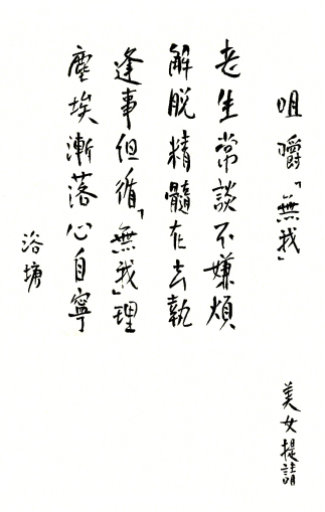 咀嚼「無我」
老生常談不嫌煩
解脫精髓在去執
逢事但循「無我」理
塵埃漸落心自寧
浴塘
美女提請